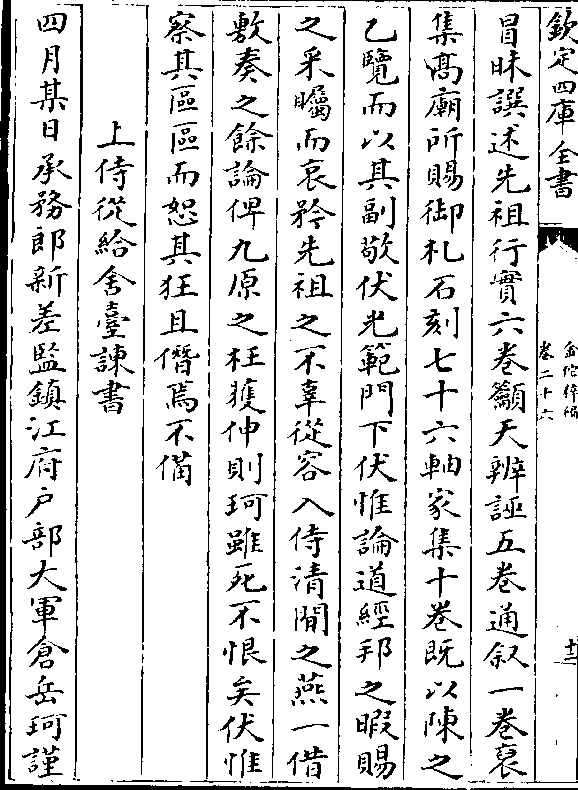 欽定四庫全書
金佗稡編
卷二十六
十二
冒昧譔述先祖行實六卷籲天辨誣五卷通叙一卷裒
集髙廟所賜御札石刻七十六軸家集十卷既以陳之
乙覽而以其副敬伏光範門下伏惟論道經邦之暇賜
之采矚而哀矜先祖之不辜從容入侍清閒之燕一借
敷奏之餘論俾九原之枉獲伸則珂雖死不恨矣伏惟
察其區區而恕其狂且僭焉不備
上侍從給舍臺諫書
四月某日承務郎新差監鎮江府户部大軍倉岳珂謹